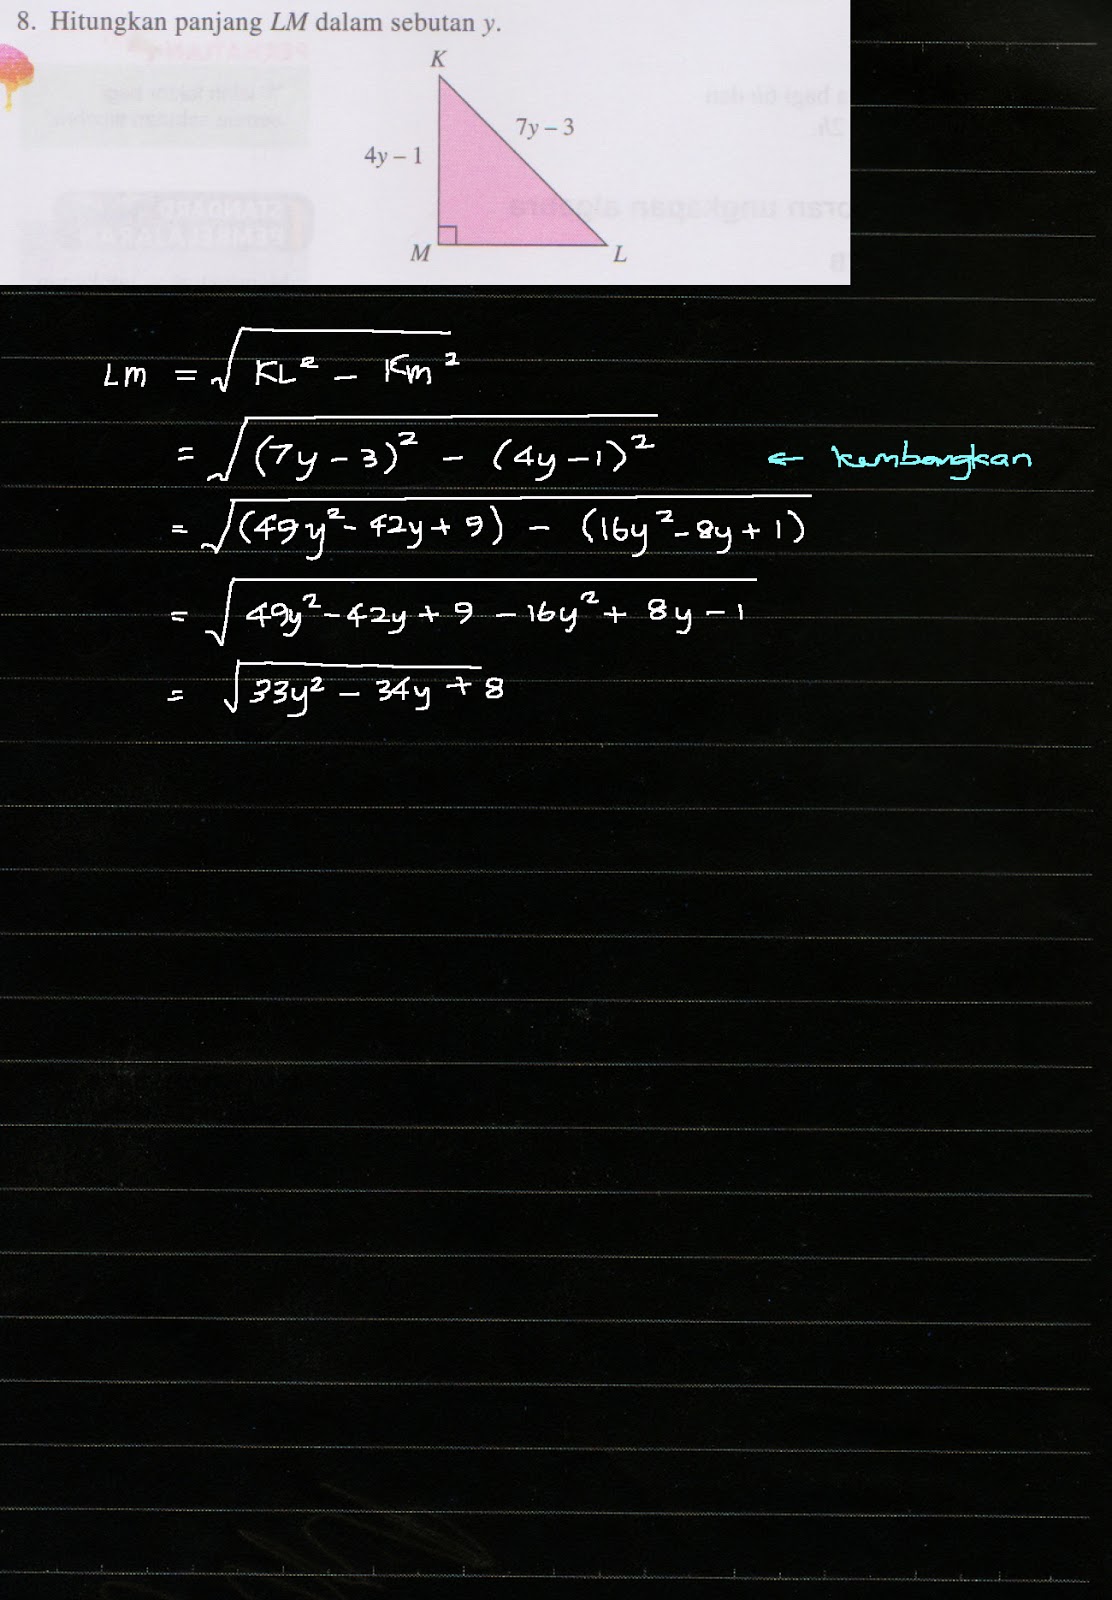 8. Hitungkan panjang LM dalam sebutan y.
K
7y – 3
4y – 1
M
L
Lm = √(KL² – Km²)
= √((7y – 3)² – (4y – 1)²) ← kembangkan
= √((49y² – 42y + 9) – (16y² – 8y + 1))
= √(49y² – 42y + 9 – 16y² + 8y – 1)
= √(33y² – 34y + 8)